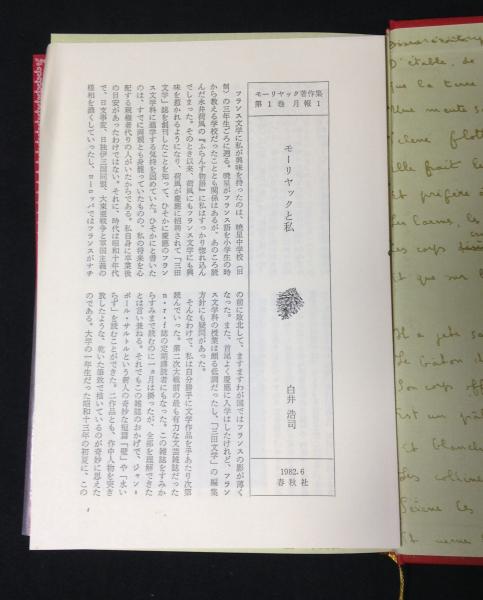 モーリヤック著作集
第1巻月報1
モーリヤックと私
白井浩司
1982.6
春秋社
フランス文学に私が興味を持ったのは、暁星中学校(旧
制)の三年生ごろに遡る。暁星がフランス語を小学生の時
から教える学校だったこととも関係はあるが、あのころ読
んだ永井荷風の『ふらんす物語』に私はすっかり惚れ込ん
でしまった。そのとき以来、荷風にもフランス文学にも興
味を惹かれるようになり、荷風が慶應に招聘されて「三田
文学」誌を創刊したことを知って、ひそかに慶應のフラン
ス文学科に進学する気持を固めていた。ひそかにと書いた
のは、すでに両親とも身罷っていたものの、私の将来を心
配する親権者代りの人がいたからである。私自身に卒業後
の目安があったわけではない。それに、時代は昭和十年代
で、日支事変、日独伊三国同盟、大東亜戦争と軍国主義の
様相を濃くしていったし、ヨーロッパではフランスがナチ
の前に敗北して、ますますわが国ではフランスの影が薄く
なった。また、首尾よく慶應に入学はしたけれど、フラン
ス文学科の授業は頗る低調だったし、「三田文学」の編集
方針にも疑問があった。
そんなわけで、私は自分勝手に文学作品を手あたり次第
読んでいった。第二次大戦前の最も有力な文芸雑誌だった
n・r・f誌の定期購読者にもなった。この雑誌をすみか
らすみまで読むのに一ヵ月は掛ったが、全部を理解できた
とは言い兼ねる。それでもこの雑誌のおかげで、ジャン=
ポール・サルトルという新人の奇妙な短篇「壁」や「まい
らず」を読むことができた。二作品とも、作中人物を突き
放したような、乾いた筆致で描いているのが奇妙に思えた
のである。大学の一年生だった昭和十三年の初夏に、この
1
D'étable, de
que la terre
Scène flott
Elle frait
Et préfère
Les corps
Et que sur
Il a jeté
Son corps
Est un
Et blanche
Les colline